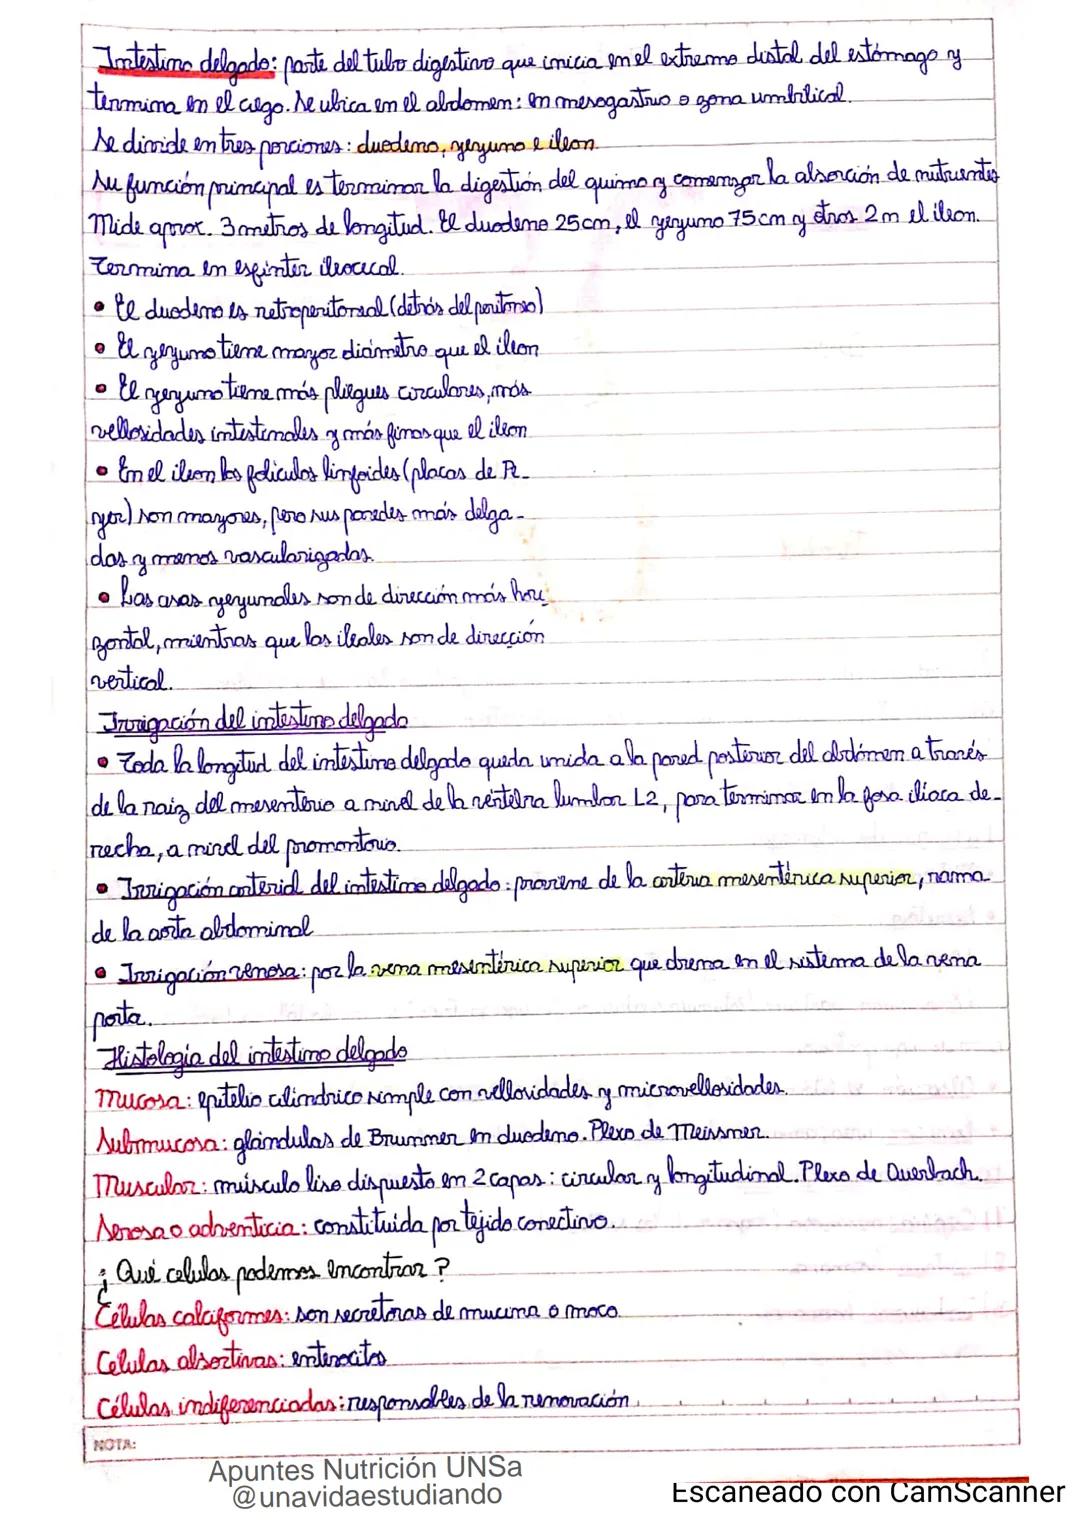 Intestino delgado: parte del tubo digestivo que inicia en el extremo distal del estómago y
termina en el ciego. Se ubica en el abdomen: en mesogastrio o zona umbilical.
Se divide en tres porciones: duodeno, yeyuno e ileon.
Su función principal es terminar la digestión del quimo y comenzar la absorción de nutrientes
Mide aprox. 3 metros de longitud. El duodeno 25 cm, el yeyuno 75 cm y otros 2 m el ileon.
Termina en esfínter ileocecal.
• El duodeno es retroperitoneal (detrás del peritoneo)
• El yeyuno tiene mayor diámetro que el ileon
• El yeyuno tiene más pliegues circulares, más
vellosidades intestinales y más finas que el ileon
• En el ileon los folículos linfoides (placas de Pe-
yer) son mayores, pero sus paredes más delga-
das y menos vascularizadas.
• Las asas yeyunales son de dirección más hori-
zontal, mientras que las ileales son de dirección
vertical.
Irrigación del intestino delgado
• Toda la longitud del intestino delgado queda unida a la pared posterior del abdómen a través
de la raiz del mesenterio a nivel de la vértebra lumbar L2, para terminar en la fosa ilíaca de-
recha, a nivel del promontorio.
• Irrigación arterial del intestino delgado: proviene de la arteria mesentérica superior, rama
de la aorta abdominal
• Irrigación venosa: por la vena mesentérica superior que drena en el sistema de la vena
porta.
Histología del intestino delgado
Mucosa: epitelio cilíndrico simple con vellosidades y microvellosidades.
Submucosa: glándulas de Brunner en duodeno. Plexo de Meissner.
Muscular: músculo liso dispuesto en 2 capas: circular y longitudinal. Plexo de Auerbach.
Serosa o adventicia: constituida por tejido conectivo.
¿Qué celulas podemos encontrar?
Células caliciformes: son secretoras de mucina o moco.
Celulas absortivas: enterocitos
Células indiferenciadas: responsables de la renovación.
NOTA:
Apuntes Nutrición UNSa
@unavidaestudiando
Escaneado con CamScanner